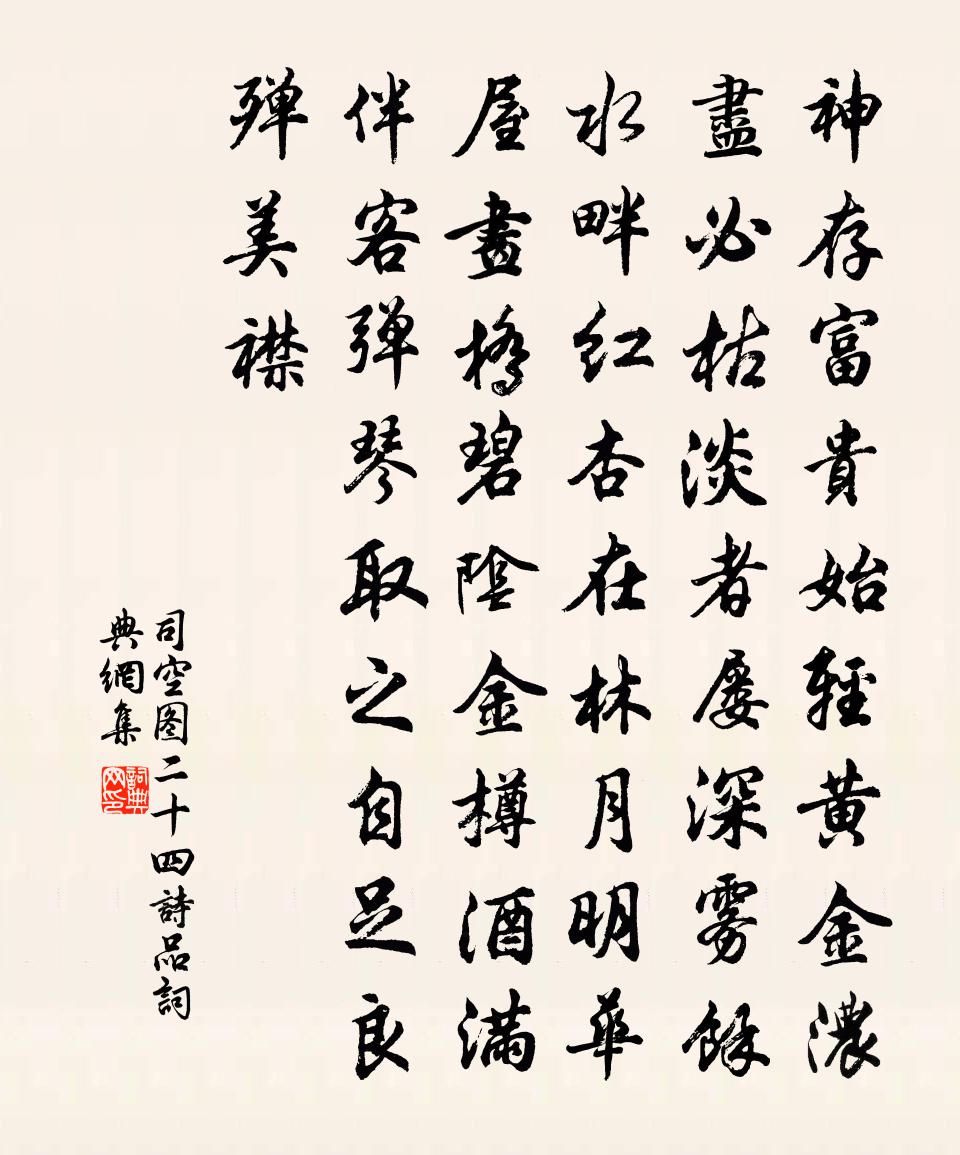 神存富貴始輕黄金濃
盡必枯淡者屡深雾餘
水畔红杏在林月明華
屋畫橋碧陰金樽酒满
伴客弹琴取之自足良
殫美襟
司空图二十四詩品詞
典網集
詞典
网印